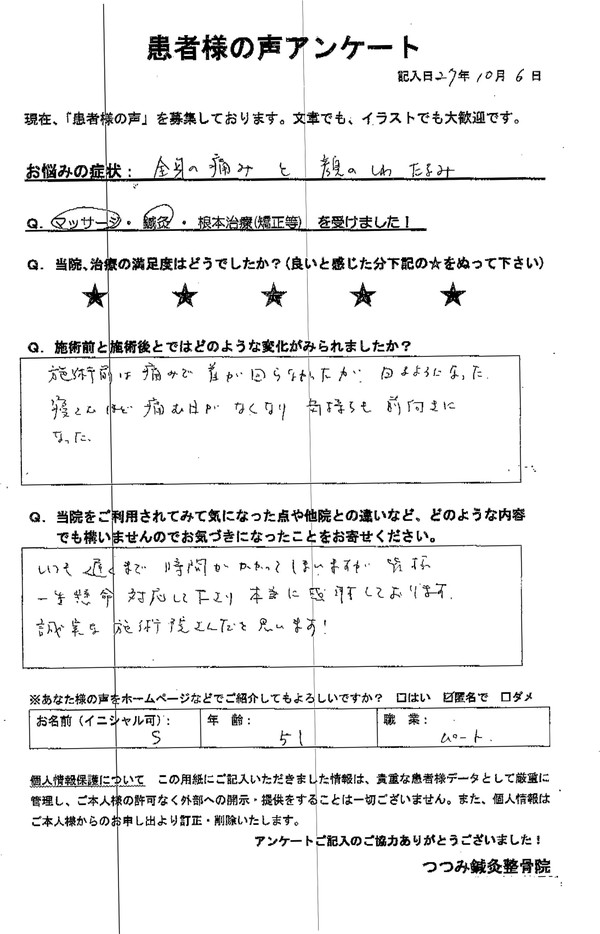 患者様の声アンケート
記入日27年10月6日
現在、「患者様の声」を募集しております。文章でも、イラストでも大歓迎です。
お悩みの症状： 全身の痛みと 顔のしわ たるみ
Q. マッサージ・鍼灸・根本治療(矯正等) を受けました！
Q. 当院、治療の満足度はどうでしたか？(良いと感じた分下記の☆をぬって下さい)
★ ★ ★ ★ ★
Q. 施術前と施術後とではどのような変化がみられましたか？
施術前は痛みで首が回らなかったが 回るようになった.
寝こんほど 痛む日が なくなり 気持ちも 前向きに
なった.
Q. 当院をご利用されてみて気になった点や他院との違いなど、どのような内容
でも構いませんのでお気づきになったことをお寄せください。
いつも 遅くまで 時間が かかってしまいますが 皆様
一生懸命 対応して下さり 本当に感謝しております.
誠実な 施術院さんだと思います!
※あなた様の声をホームページなどでご紹介してもよろしいですか？ □はい ☑匿名で □ダメ
お名前(イニシャル可)： S 年 齢： 51 職 業： パート.
個人情報保護について この用紙にご記入いただきました情報は、貴重な患者様データとして厳重に
管理し、ご本人様の許可なく外部への開示・提供をすることは一切ございません。また、個人情報は
ご本人様からのお申し出より訂正・削除いたします。
アンケートご記入のご協力ありがとうございました！
つつみ鍼灸整骨院